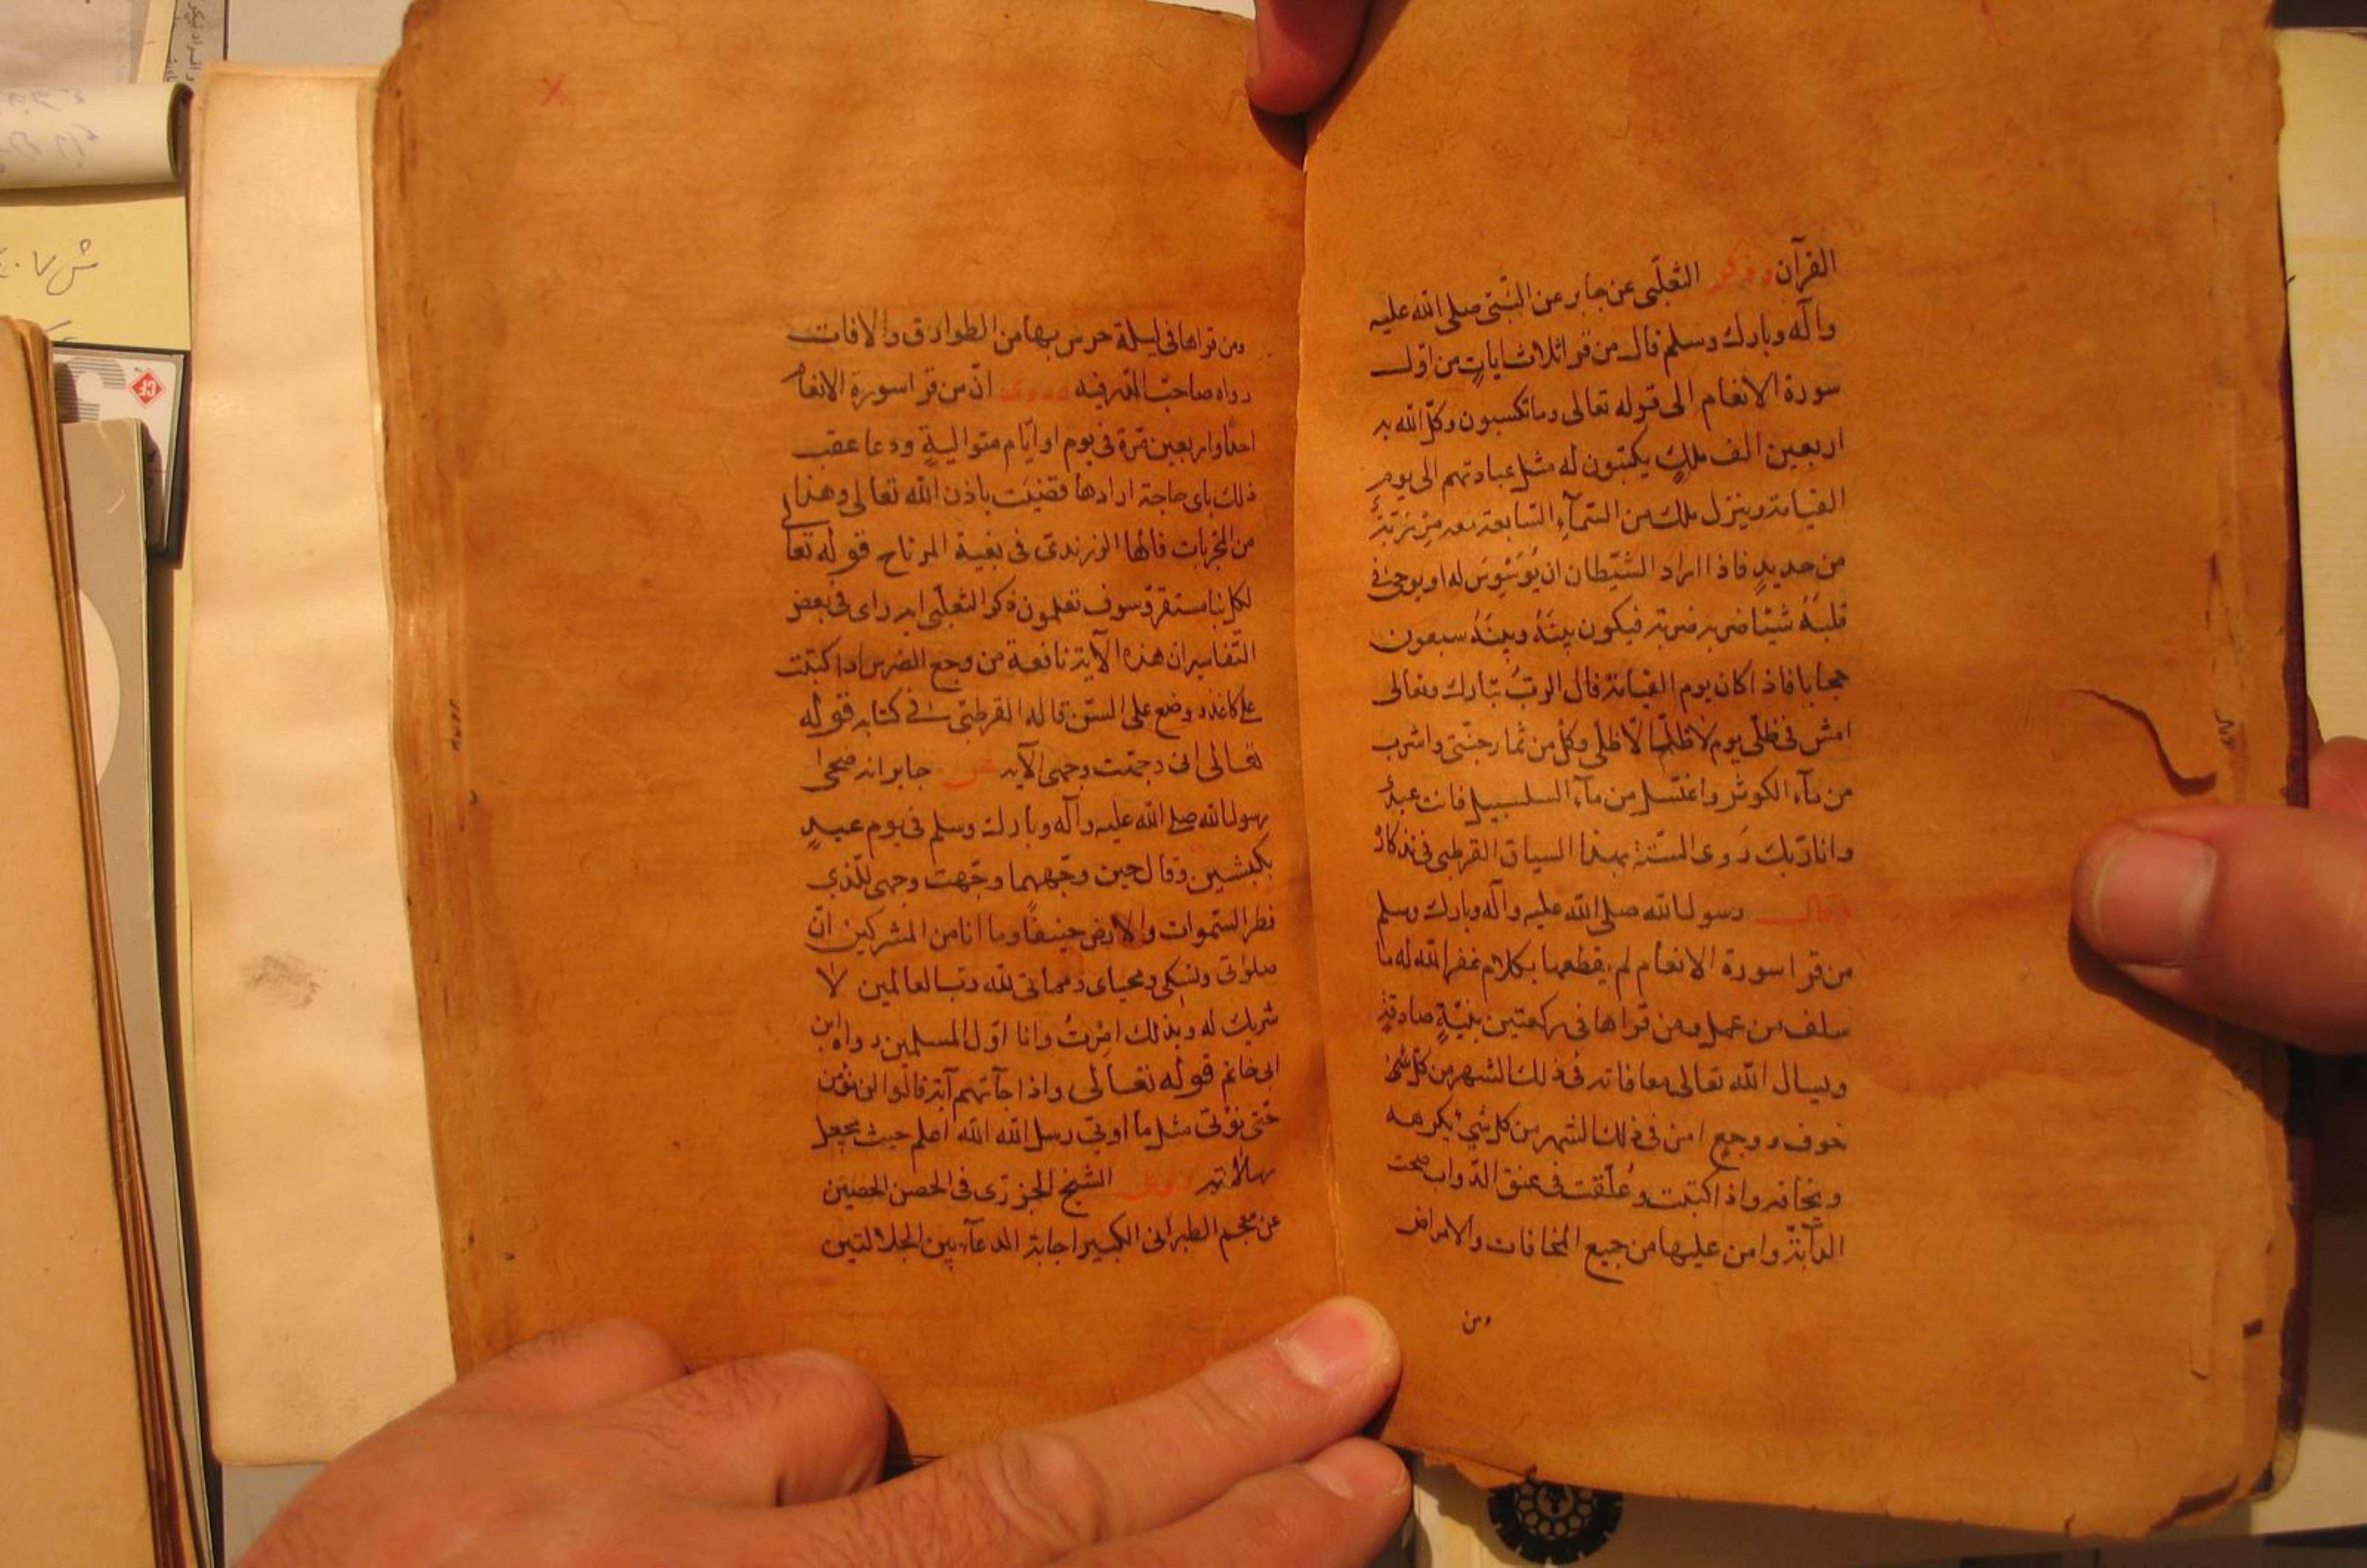 القرآن وذكر الثعلبى عن جابر عن النبى صلى الله عليه
وآله وبارك وسلم قال من قرا ثلاث ايات من اول
سورة الانعام الى قوله تعالى وما تكسبون وكل الله به
اربعين الف ملك يكتبون له مثل عبادتهم الى يوم
القيامة وينزل ملك من السمآء السابعة معه مرزبة
من حديد فاذا اراد الشيطان ان يوسوس له او يوحى فى
قلبه شيئا ضربه ضربة فيكون بينه وبينه سبعون
حجابا فاذا كان يوم القيامة قال الرب تبارك وتعالى
امش فى ظلى يوم لا ظل الا ظلى وكل من ثمار جنتى واشرب
من مآء الكوثر واغتسل من مآء السلسبيل فانت عبدى
وانا ربك روى السنة بهذا السياق القرطبى فى تذكاره
وقال رسول الله صلى الله عليه وآله وبارك وسلم
من قرا سورة الانعام لم يقطعها بكلام غفر الله له ما
سلف من عمل ومن قراها فى ركعتين بنية صادقة
ويسال الله تعالى معافاته فى ذلك الشهر من كل شئ
خوف ووجع امن فى ذلك الشهر من كل شئ يكرهه
ويخافه واذا كتبت وعلقت فى عنق الدواب صحت
الدآبة وامن عليها من جميع المخافات والامراض
ومن
ومن قراها فى ليلة حرس بها من الطوارق والافات
رواه صاحب وروى ان من قرا سورة الانعام
احدا واربعين مرة فى يوم او ايام متوالية ودعا عقب
ذلك باى حاجة ارادها قضيت باذن الله تعالى وهذا
من المجربات قالها الزرندى فى بغية المرتاح قوله تعالى
لكل نبا مستقر وسوف تعلمون ذكر الثعلبى انه راى فى بعض
التفاسير ان هذه الآية نافعة من وجع الضرس اذا كتبت
على كاغد ووضع على السن قاله القرطبى فى كتابه قوله
تعالى انى وجهت وجهى الآية عن جابر انه ضحى
رسول الله صلى الله عليه وآله وبارك وسلم فى يوم عيد
بكبشين وقال حين وجههما وجهت وجهى للذى
فطر السموات والارض حنيفا وما انا من المشركين ان
صلوتى ونسكى ومحياى ومماتى لله رب العالمين لا
شريك له وبذلك امرت وانا اول المسلمين رواه ابن
ابى حاتم قوله تعالى واذا جآتهم آية قالوا لن نؤمن
حتى نؤتى مثل ما اوتى رسل الله الله اعلم حيث يجعل
رسالاته روى الشيخ الجزرى فى الحصن الحصين
عن معجم الطبرانى الكبير اجابة الدعآء بين الجلالتين